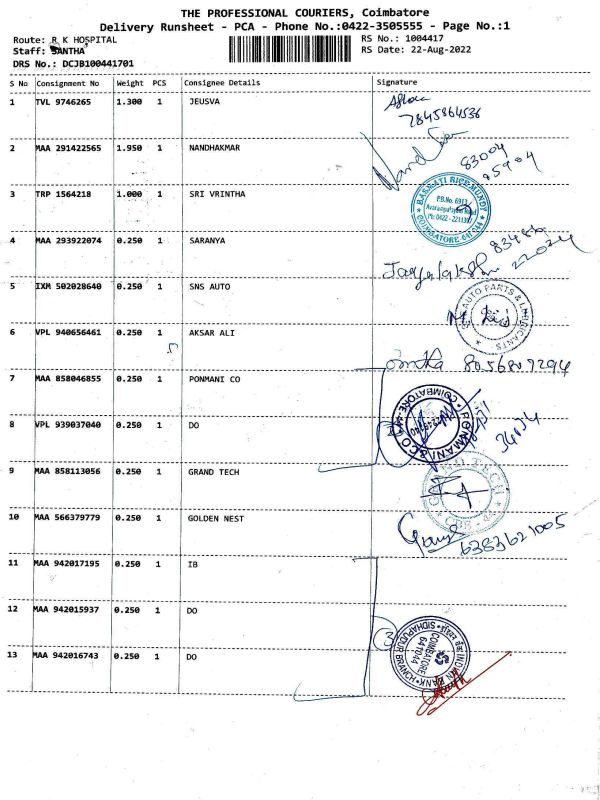 THE PROFESSIONAL COURIERS, Coimbatore
Delivery Runsheet - PCA - Phone No.:0422-3505555 - Page No.:1
Route: R K HOSPITAL
RS No.: 1004417
Staff: SANTHA
RS Date: 22-Aug-2022
DRS No.: DCJB100441701
S No Consignment No Weight PCS Consignee Details Signature
1 TVL 9746265 1.300 1 JEUSVA
7845864536
2 MAA 291422565 1.950 1 NANDHAKMAR
83004
05904
3 TRP 1564218 1.000 1 SRI VRINTHA
BASMATI RICE MUNDY
P.B.No. 6913
COIMBATORE 641 044
4 MAA 293922074 0.250 1 SARANYA
22024
5 IXM 502028640 0.250 1 SNS AUTO
AUTO PARTS & LUBRICANTS
6 VPL 940656461 0.250 1 AKSAR ALI
7 MAA 858046855 0.250 1 PONMANI CO
PONMANI & CO
COIMBATORE
8 VPL 939037040 0.250 1 DO
9 MAA 858113056 0.250 1 GRAND TECH
CBE
10 MAA 566379779 0.250 1 GOLDEN NEST
6383621005
11 MAA 942017195 0.250 1 IB
12 MAA 942015937 0.250 1 DO
3
SIDHAPUDUR BRANCH
COIMBATORE
641044
INDIAN BANK
13 MAA 942016743 0.250 1 DO